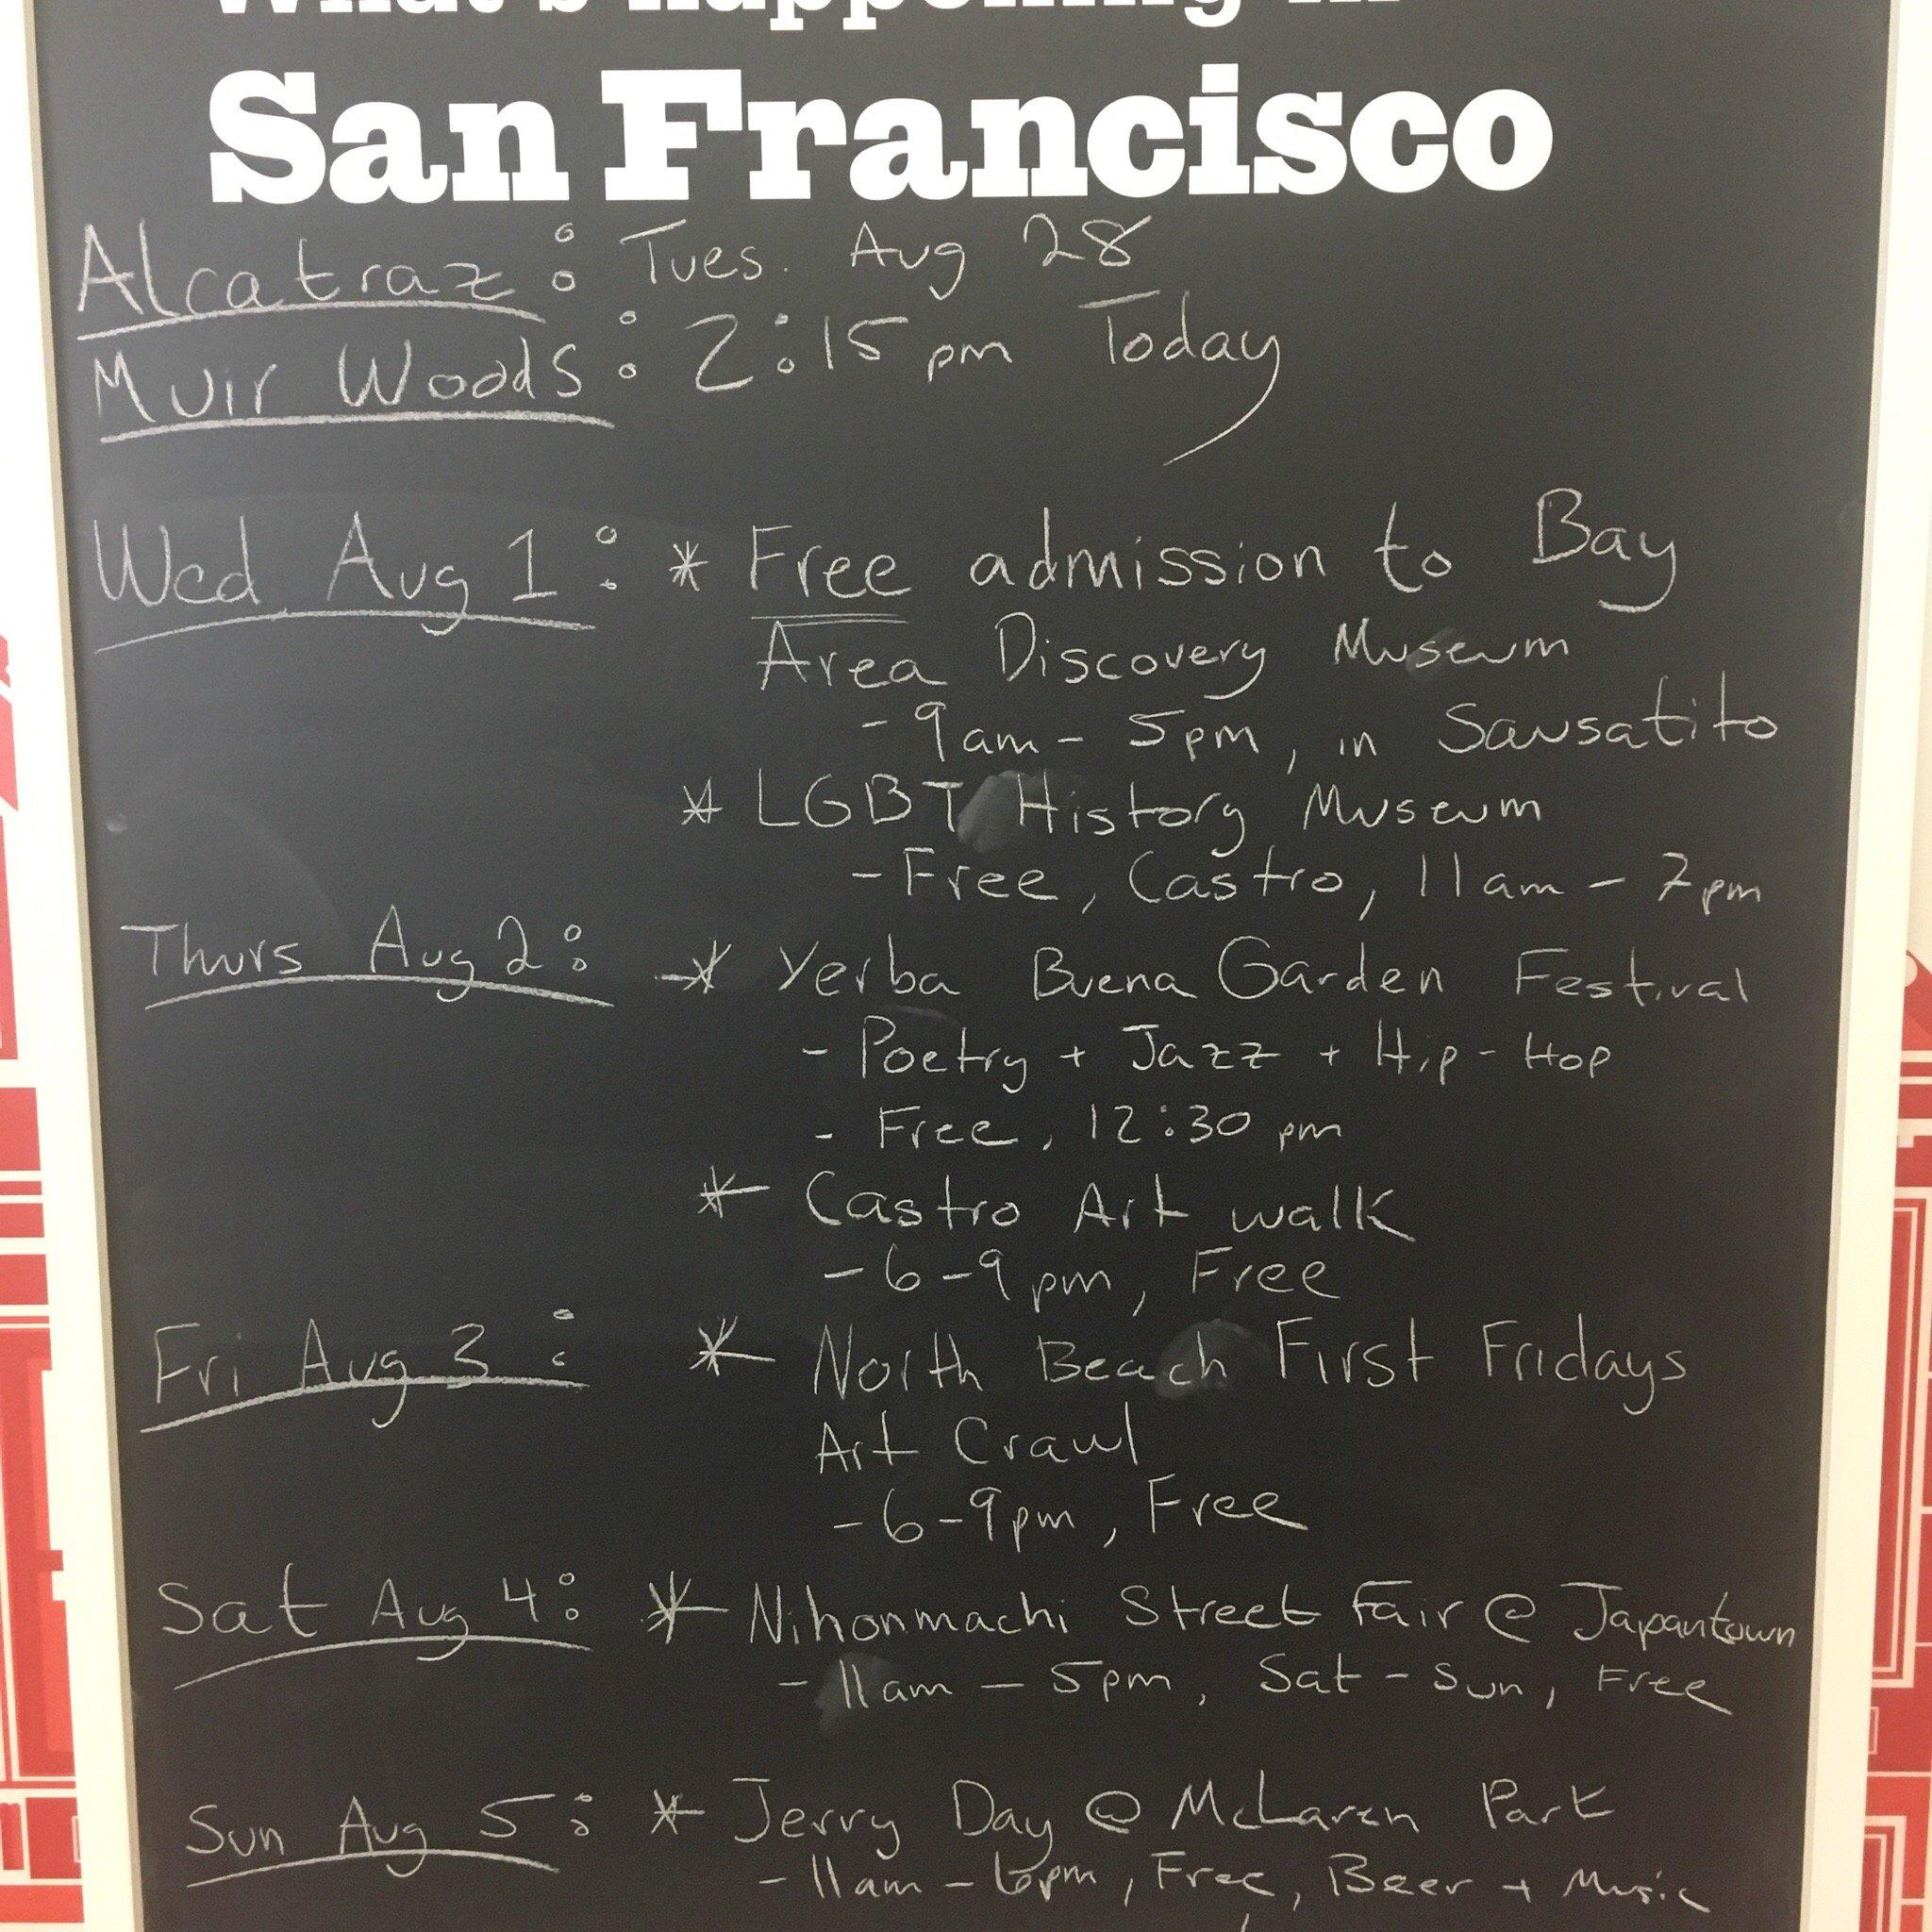 What's happening in
San Francisco
Alcatraz: Tues. Aug 28
Muir Woods: 2:15 pm Today
Wed Aug 1: * Free admission to Bay
Area Discovery Museum
- 9am - 5pm, in Sausatito
* LGBT History Museum
- Free, Castro, 11am - 7pm
Thurs Aug 2: * Yerba Buena Garden Festival
- Poetry + Jazz + Hip-Hop
- Free, 12:30 pm
* Castro Art walk
- 6-9pm, Free
Fri Aug 3: * North Beach First Fridays
Art Crawl
- 6-9pm, Free
Sat Aug 4: * Nihonmachi Street Fair @ Japantown
- 11am - 5pm, Sat - Sun, Free
Sun Aug 5: * Jerry Day @ McLaren Park
- 11am - 6pm, Free, Beer + Music